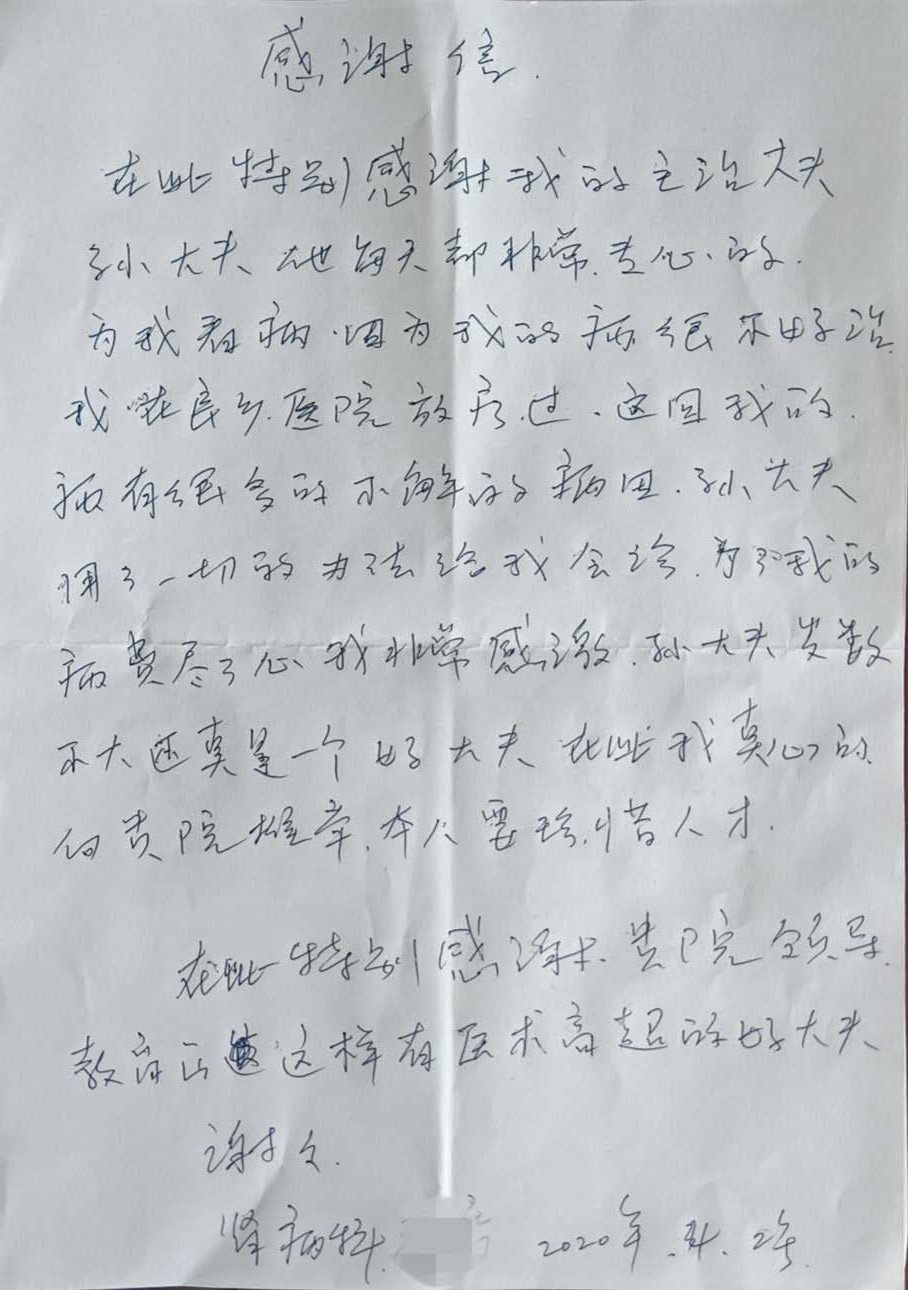 感谢信.
在此特别感谢我的主治大夫
孙大夫她每天都非常专心的.
为我看病.因为我的病很不好治.
我在良乡医院放疗过、这回我的.
病有很多的不解的病因.孙大夫
用了一切的办法给我会诊.为了我的
病费尽了心我非常感激.孙大夫岁数
不大还真是一个好大夫在此我真心的
向贵院推荐.本人要珍惜人才.
在此特别感谢贵院领导.
教育出这样有医术高超的好大夫
谢谢.
肾病科. 2020年.4.